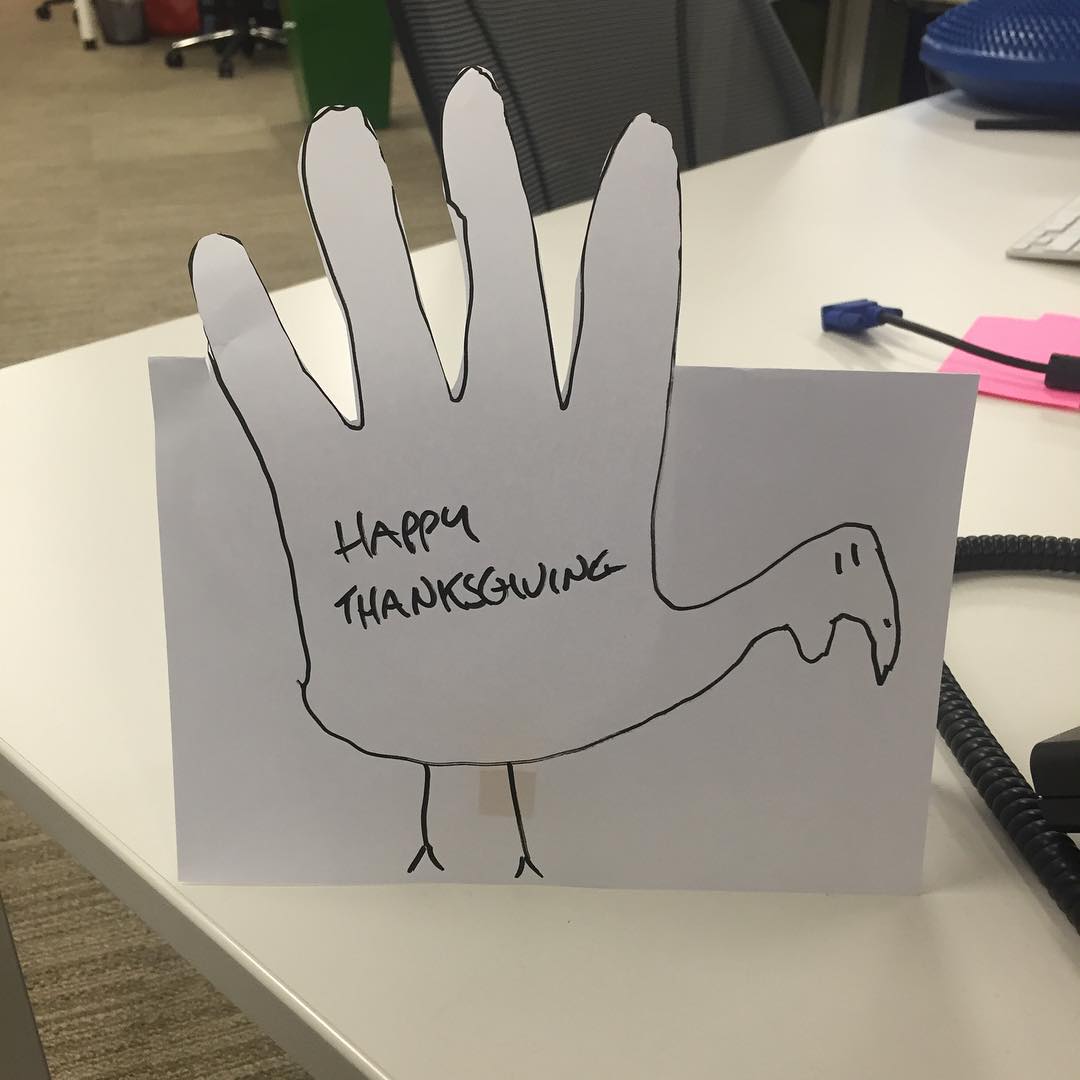 HAPPY
THANKSGIVING